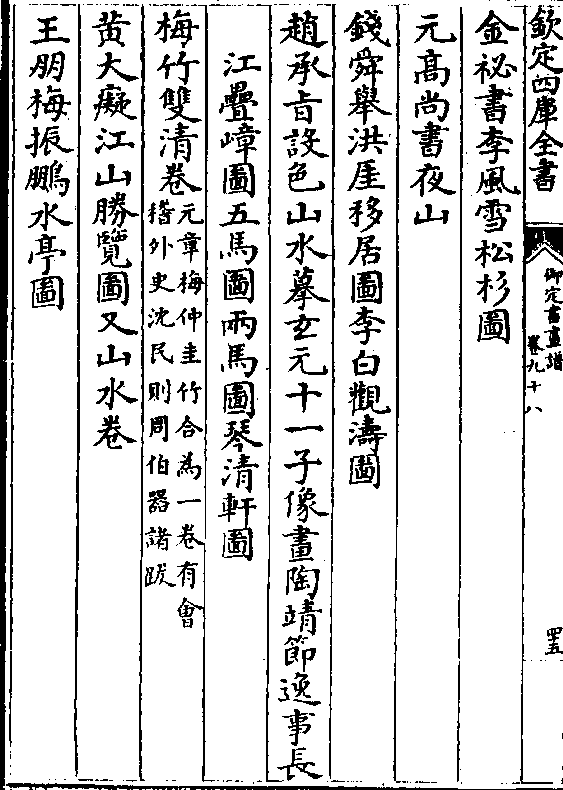 欽定四庫全書
御定書畫譜
卷九十八
四五
金祕書李風雪松杉圖
元高尚書夜山
錢舜舉洪厓移居圖李白觀濤圖
趙承旨設色山水摹玄元十一子像畫陶靖節逸事長
江疊嶂圖五馬圖兩馬圖琴清軒圖
梅竹雙清卷元章梅仲圭竹合為一卷有會
稽外史沈民則周伯器諸跋
黄大癡江山勝覽圖又山水卷
王朋梅振鵬水亭圖